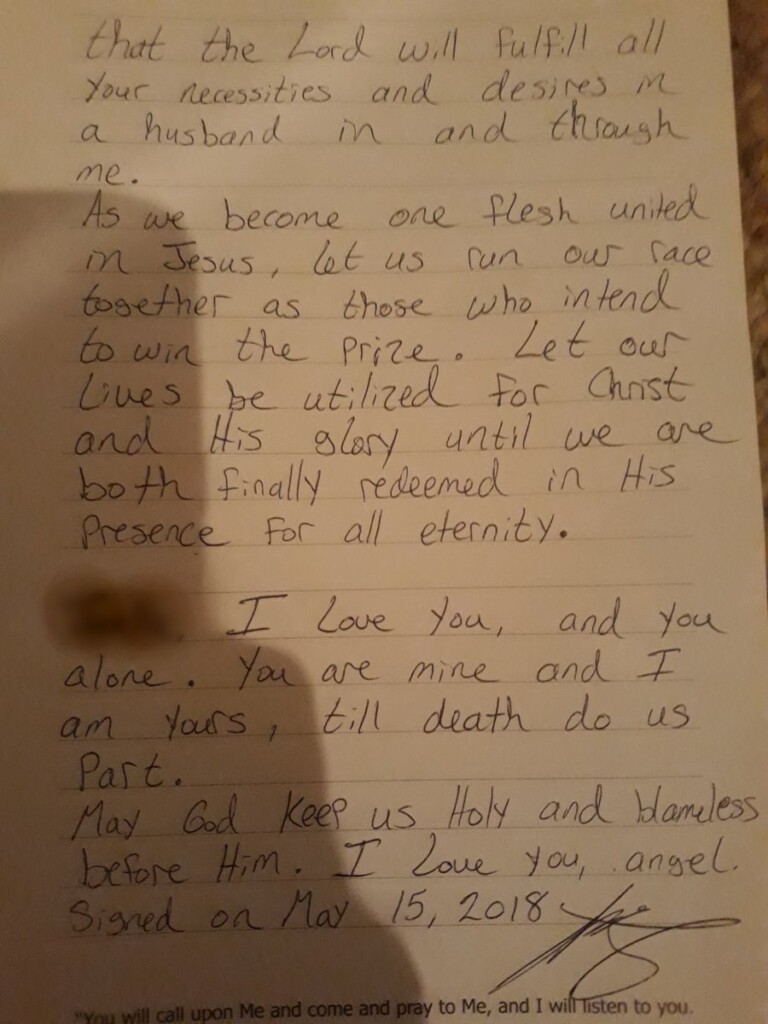 that the Lord will fulfill all
your necessities and desires in
a husband in and through
me.
As we become one flesh united
in Jesus, let us run our race
together as those who intend
to win the prize. Let our
lives be utilized for Christ
and His glory until we are
both finally redeemed in His
presence for all eternity.
, I love you, and you
alone. You are mine and I
am yours, till death do us
part.
May God keep us Holy and blameless
before Him. I love you, angel.
Signed on May 15, 2018
"You will call upon Me and come and pray to Me, and I will listen to you.